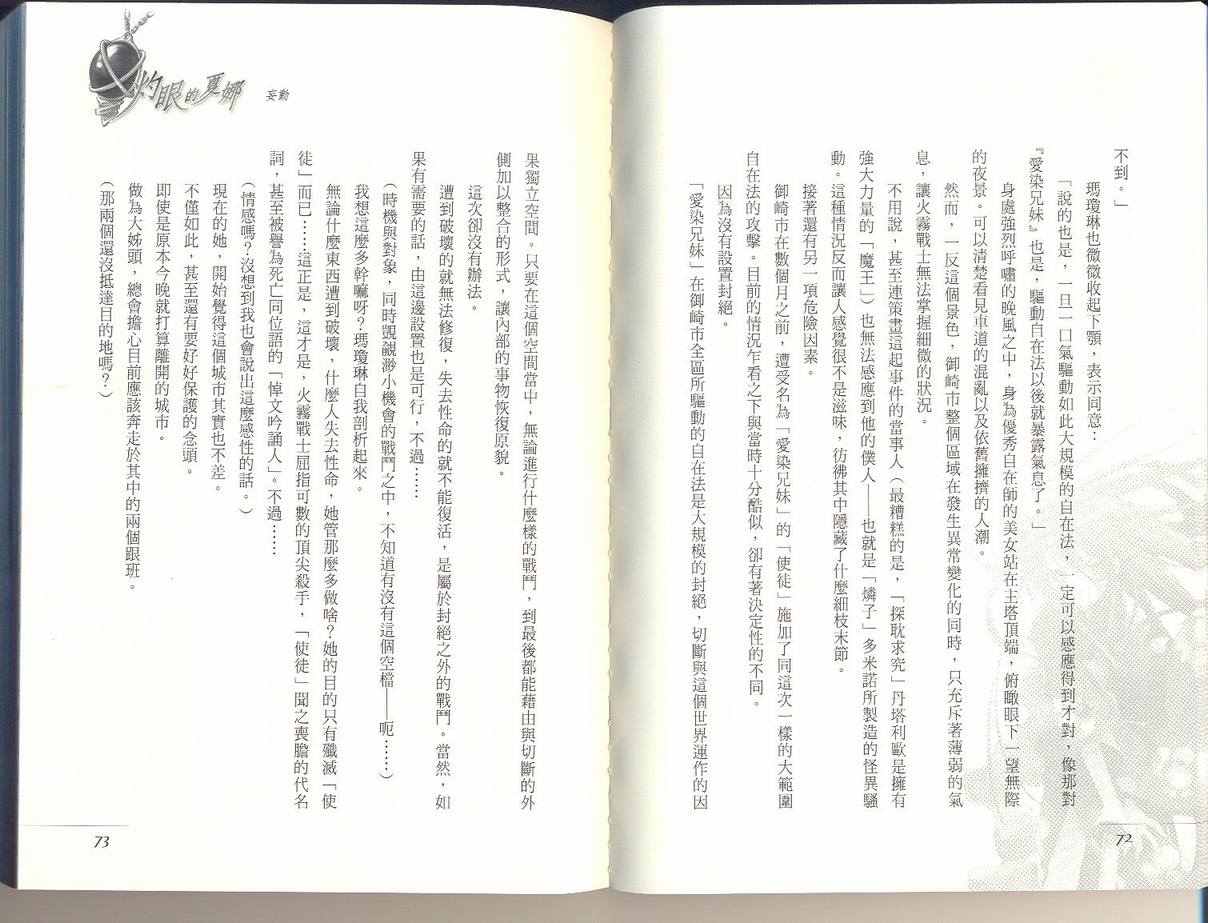 不到。」
瑪瓊琳也微微收起下顎，表示同意：
「說的也是，一旦一口氣驅動如此大規模的自在法，一定可以感應得到才對，像那對
『愛染兄妹』也是，驅動自在法以後就暴露氣息了。」
身處強烈呼嘯的晚風之中，身為優秀自在師的美女站在主塔頂端，俯瞰眼下一望無際
的夜景。可以清楚看見車道的混亂以及依舊擁擠的人潮。
然而，一反這個景色，御崎市整個區域在發生異常變化的同時，只充斥著薄弱的氣
息，讓火霧戰士無法掌握細微的狀況。
不用說，甚至連策畫這起事件的當事人（最糟糕的是，「探耽求究」丹塔利歐是擁有
強大力量的「魔王」）也無法感應到他的僕人——也就是「燐子」多米諾所製造的怪異騷
動。這種情況反而讓人感覺很不是滋味，彷彿其中隱藏了什麼細枝末節。
接著還有另一項危險因素。
御崎市在數個月之前，遭受名為「愛染兄妹」的「使徒」施加了同這次一樣的大範圍
自在法的攻擊。目前的情況乍看之下與當時十分酷似，卻有著決定性的不同。
因為沒有設置封絕。
「愛染兄妹」在御崎市全區所驅動的自在法是大規模的封絕，切斷與這個世界運作的因
72
灼眼的夏娜
妄動
果獨立空間。只要在這個空間當中，無論進行什麼樣的戰鬥，到最後都能藉由與切斷的外
側加以整合的形式，讓內部的事物恢復原貌。
這次卻沒有辦法。
遭到破壞的就無法修復，失去性命的就不能復活，是屬於封絕之外的戰鬥。當然，如
果有需要的話，由這邊設置也是可行，不過……
（時機與對象，同時覬覦渺小機會的戰鬥之中，不知道有沒有這個空檔——呃……）
我想這麼多幹嘛呀？瑪瓊琳自我剖析起來。
無論什麼東西遭到破壞，什麼人失去性命，她管那麼多做啥？她的目的只有殲滅「使
徒」而已……這正是，這才是，火霧戰士屈指可數的頂尖殺手，「使徒」聞之喪膽的代名
詞，甚至被譽為死亡同位語的「悼文吟誦人」。不過……
（情感嗎？沒想到我也會說出這麼感性的話。）
現在的她，開始覺得這個城市其實也不差。
不僅如此，甚至還有要好好保護的念頭。
即使是原本今晚就打算離開的城市。
做為大姊頭，總會擔心目前應該奔走於其中的兩個跟班。
（那兩個還沒抵達目的地嗎？）
73